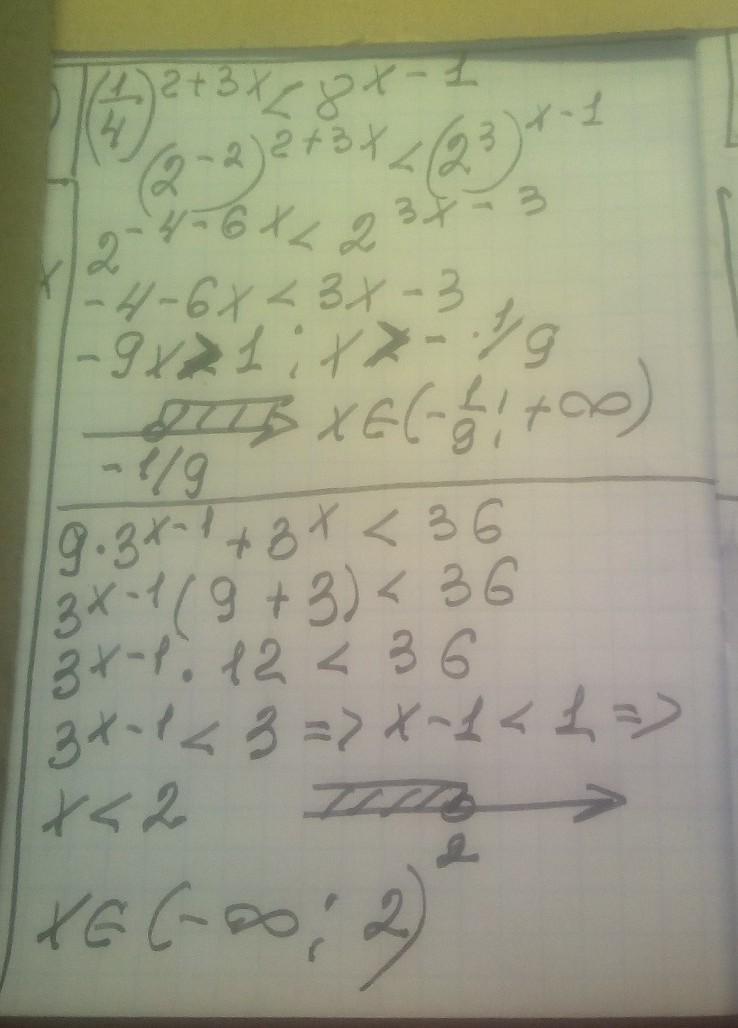 (1/4)^(2+3x) < 8^(x-1)
(2^(-2))^(2+3x) < (2^3)^(x-1)
2^(-4-6x) < 2^(3x-3)
-4-6x < 3x-3
-9x > 1 ; x > -1/9
x∈(-1/9; +∞)
-1/9
9·3^(x-1) + 3^x < 36
3^(x-1)(9+3) < 36
3^(x-1)·12 < 36
3^(x-1) < 3 => x-1 < 1 =>
x < 2
2
x∈(-∞; 2)